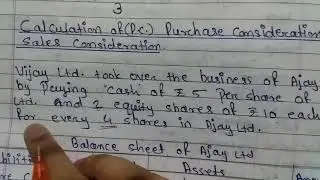 3
Calculation of (P.C.) Purchase Consideration
Sales Consideration
Vijay Ltd. took over the business of Ajay
by Paying cash of ₹ 5 Per share of
Ltd. And 2 equity shares of ₹ 10 each
For every 4 shares in Ajay Ltd.
Balance sheet of Ajay Ltd
Assets